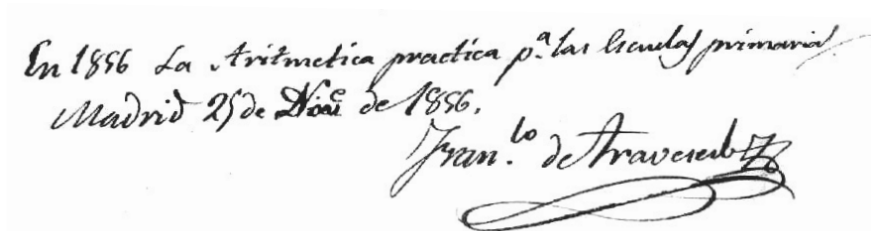 En 1856 La Aritmetica practica p.ª las Escuelas primarias
Madrid 25 de Nov.e de 1856.
Fran.co de Travesedo